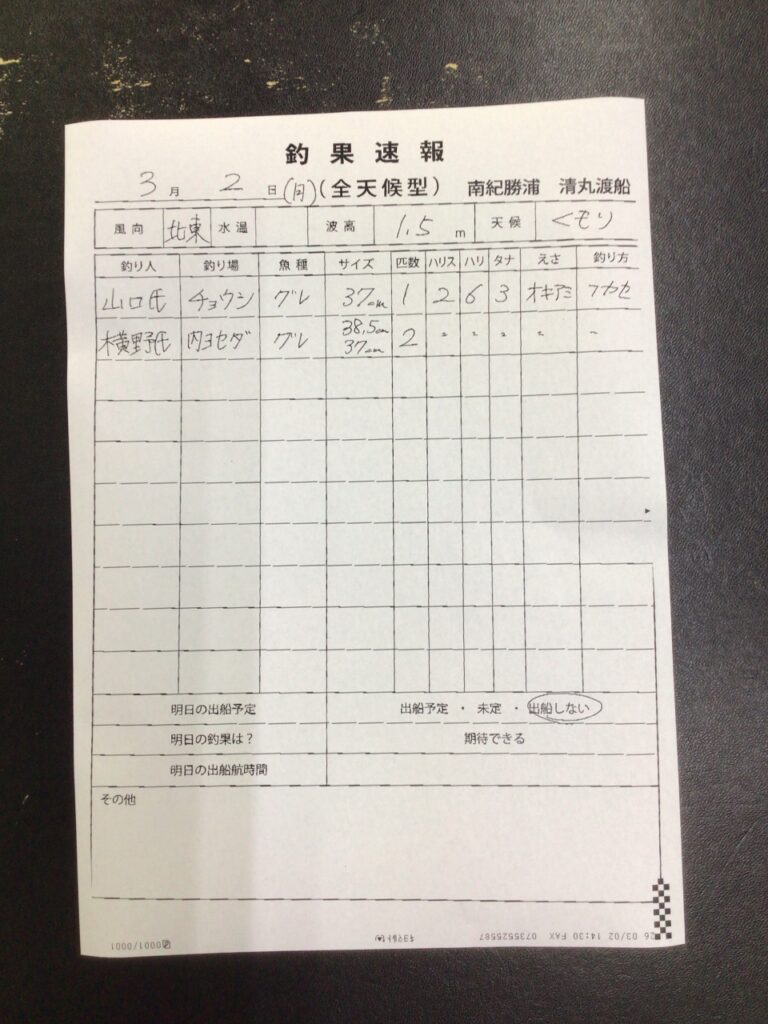 釣果速報
3月 2日(月)(全天候型) 南紀勝浦 清丸渡船
風向 北東 水温 波高 1.5 m 天候 くもり
釣り人 釣り場 魚種 サイズ 匹数 ハリス ハリ タナ えさ 釣り方
山口氏 チョウシ グレ 37cm 1 2 6 3 オキアミ フカセ
横野氏 内ヨセダ グレ 38.5cm 37cm 2 〃 〃 〃 〃 〃
明日の出船予定 出船予定 ・ 未定 ・ 出船しない
明日の釣果は? 期待できる
明日の出船航時間
その他
26 03/02 14:30 FAX 0735525587 キヨマルトセン 0001/0001